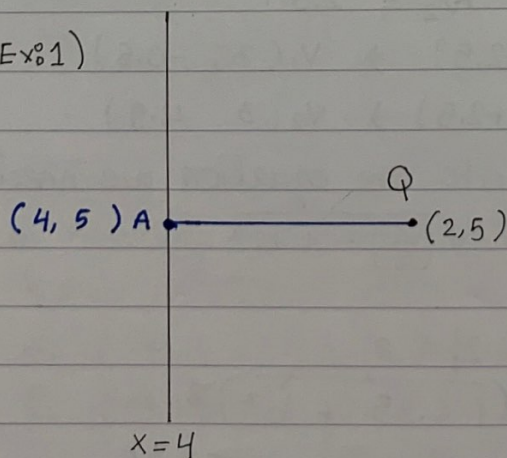 Ex:1)
Q
(4, 5) A
(2,5)
x=4